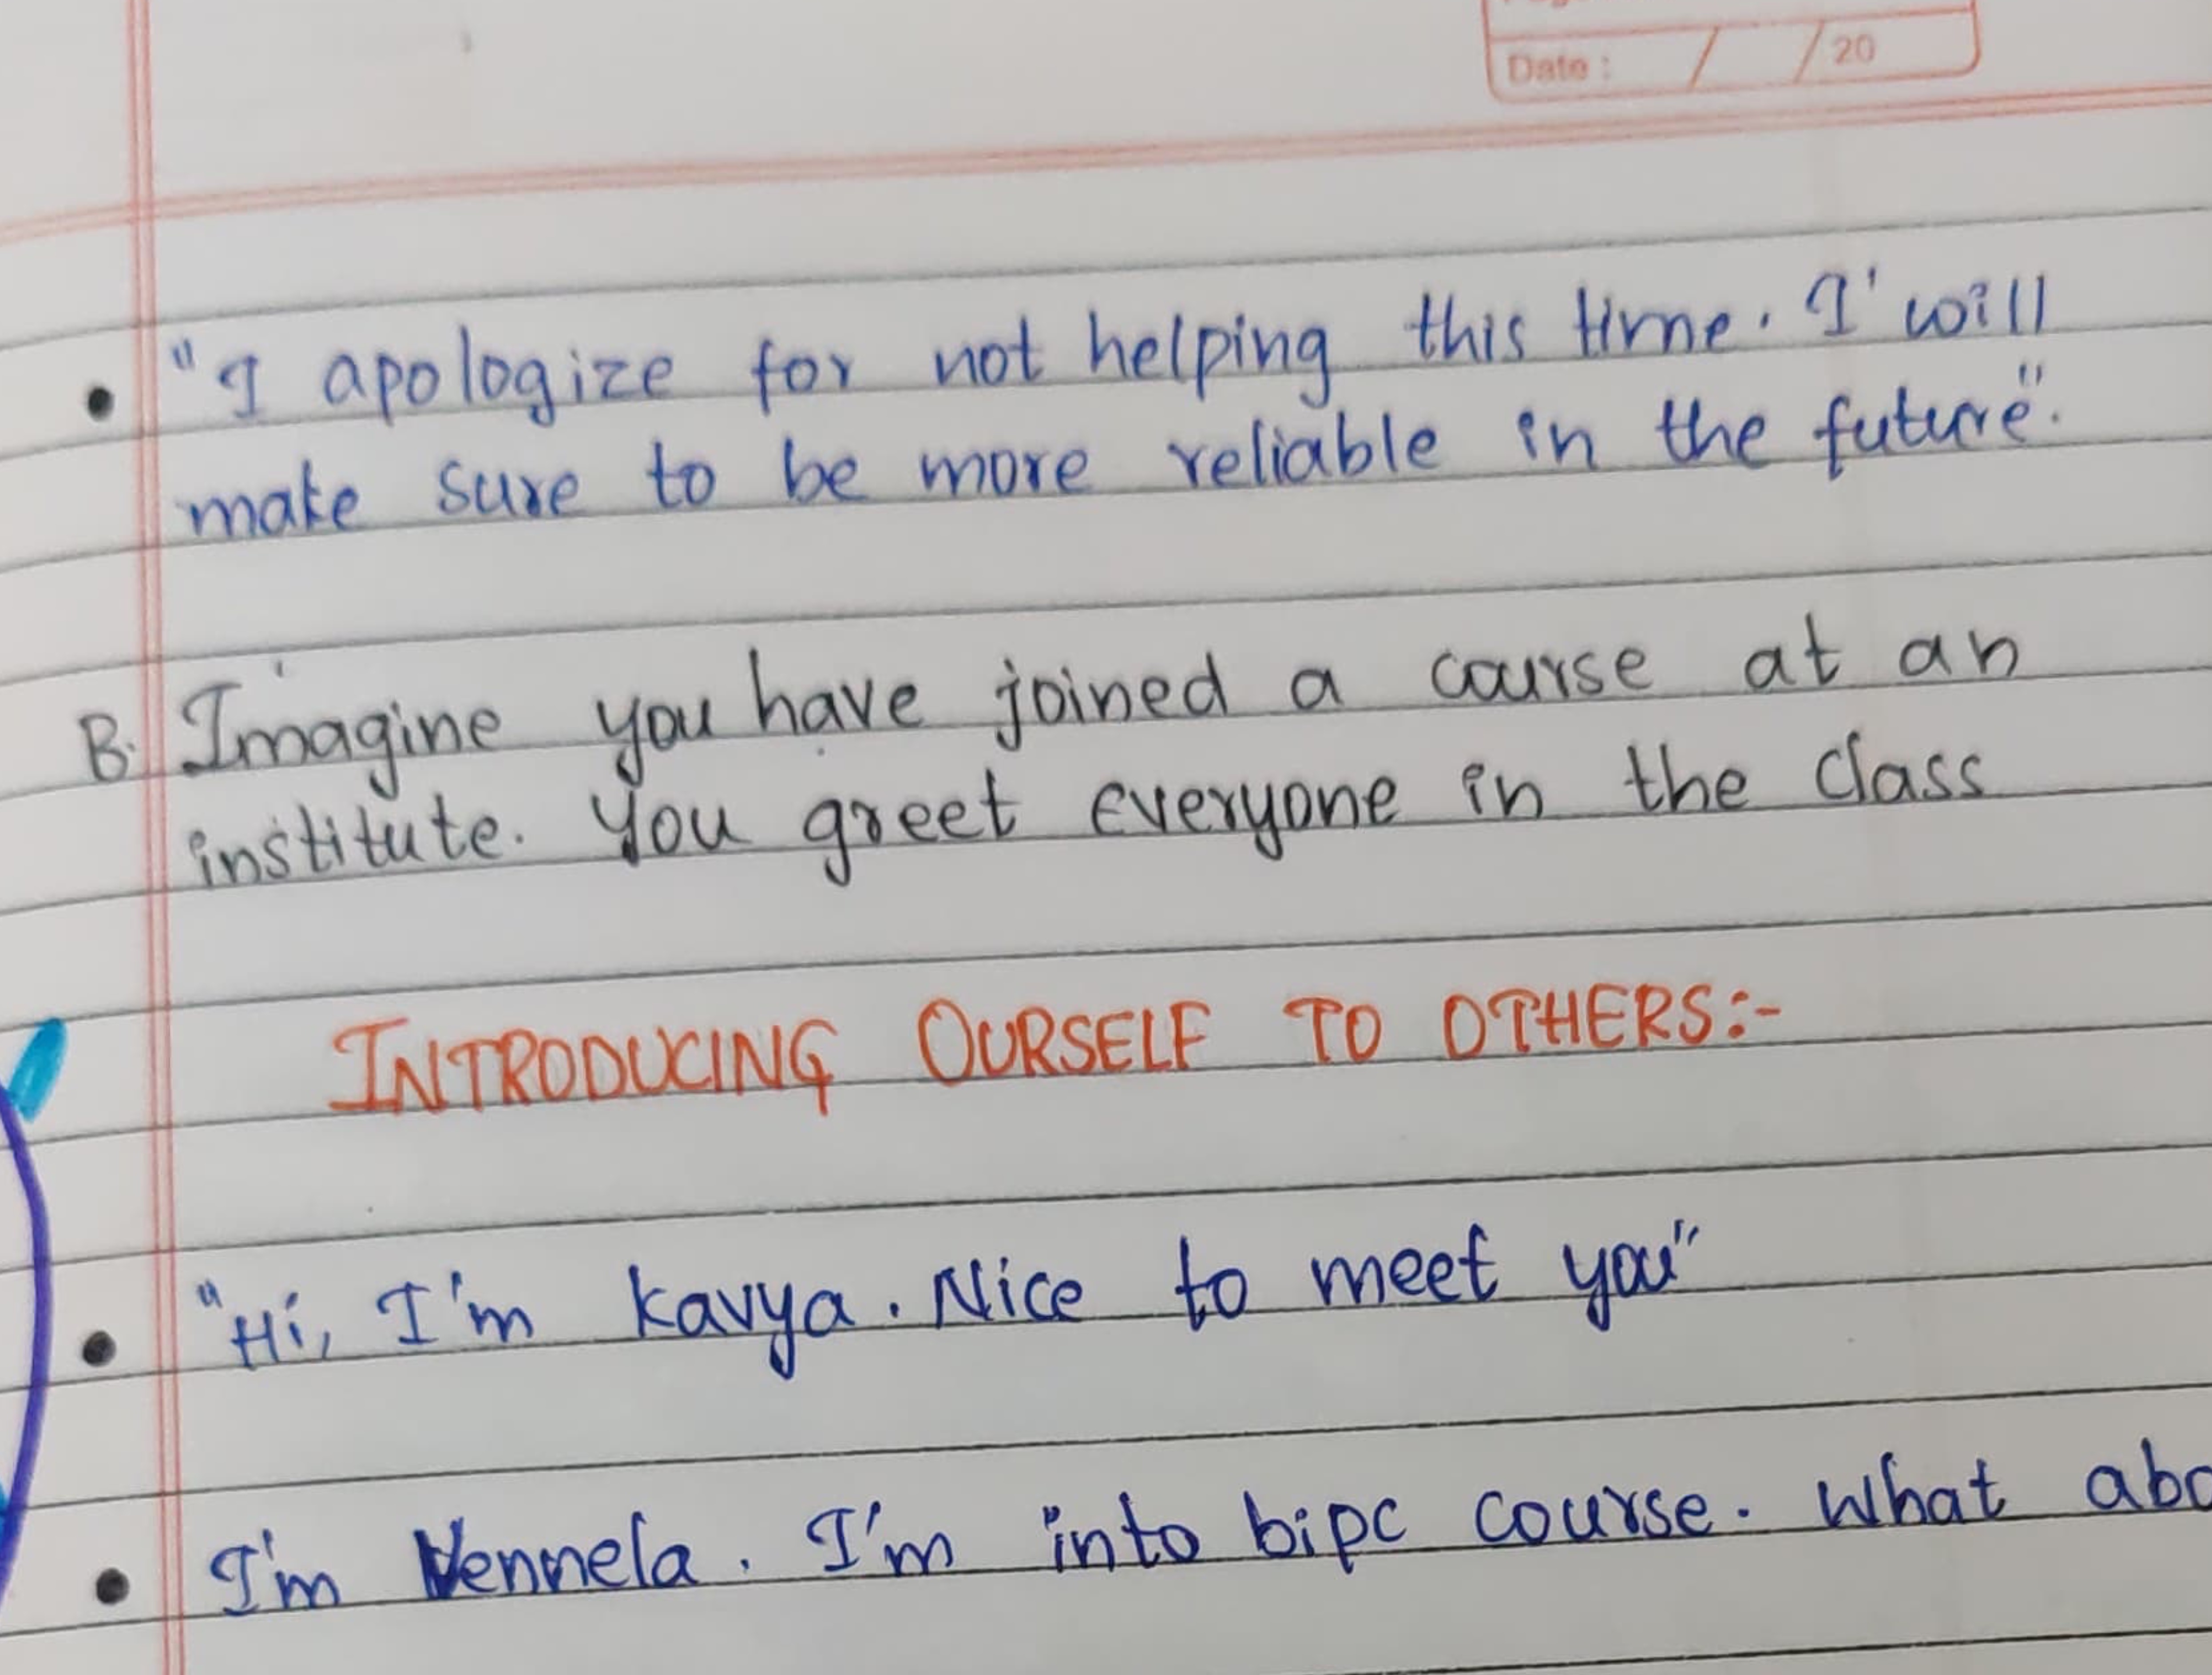 Date : / / 20
• "I apologize for not helping this time. I' will
make sure to be more reliable in the future".
B. Imagine you have joined a course at an
institute. You greet everyone in the class
INTRODUCING OURSELF TO OTHERS:-
• "Hi, I'm kavya. Nice to meet you"
• I'm Vennela. I'm into bipc course. What